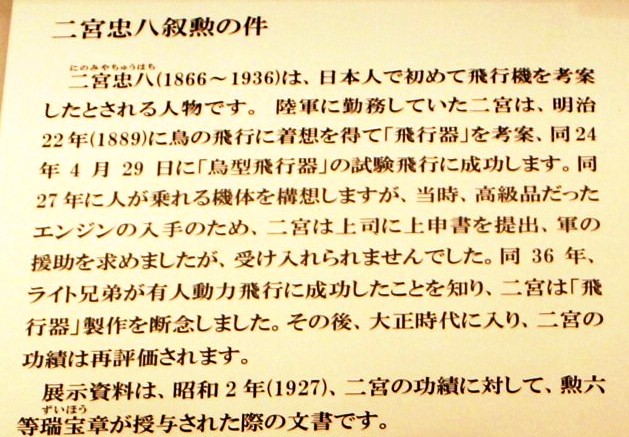 二宮忠八叙勲の件
にのみやちゅうはち
二宮忠八(1866～1936)は、日本人で初めて飛行機を考案
したとされる人物です。 陸軍に勤務していた二宮は、明治
22年(1889)に鳥の飛行に着想を得て「飛行器」を考案、同24
年 4 月 29 日に「鳥型飛行器」の試験飛行に成功します。同
27年に人が乗れる機体を構想しますが、当時、高級品だった
エンジンの入手のため、二宮は上司に上申書を提出、軍の
援助を求めましたが、受け入れられませんでした。同 36 年、
ライト兄弟が有人動力飛行に成功したことを知り、二宮は「飛
行器」製作を断念しました。その後、大正時代に入り、二宮の
功績は再評価されます。
展示資料は、昭和 2 年(1927)、二宮の功績に対して、勲六
ずいほう
等瑞宝章が授与された際の文書です。